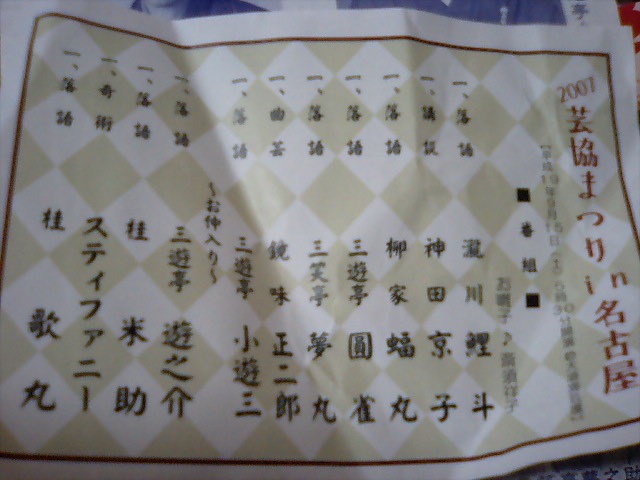 2007 芸協まつり in 名古屋
■ 番組 ■
一、落語 瀧川 鯉斗
一、講談 神田 京子
一、落語 柳家 蝠丸
一、落語 三遊亭 圓雀
一、落語 三笑亭 夢丸
一、曲芸 鏡味 正二郎
一、落語 三遊亭 小遊三
～お仲入り～
一、落語 三遊亭 遊之介
一、落語 桂 米助
一、奇術 スティファニー
一、落語 桂 歌丸